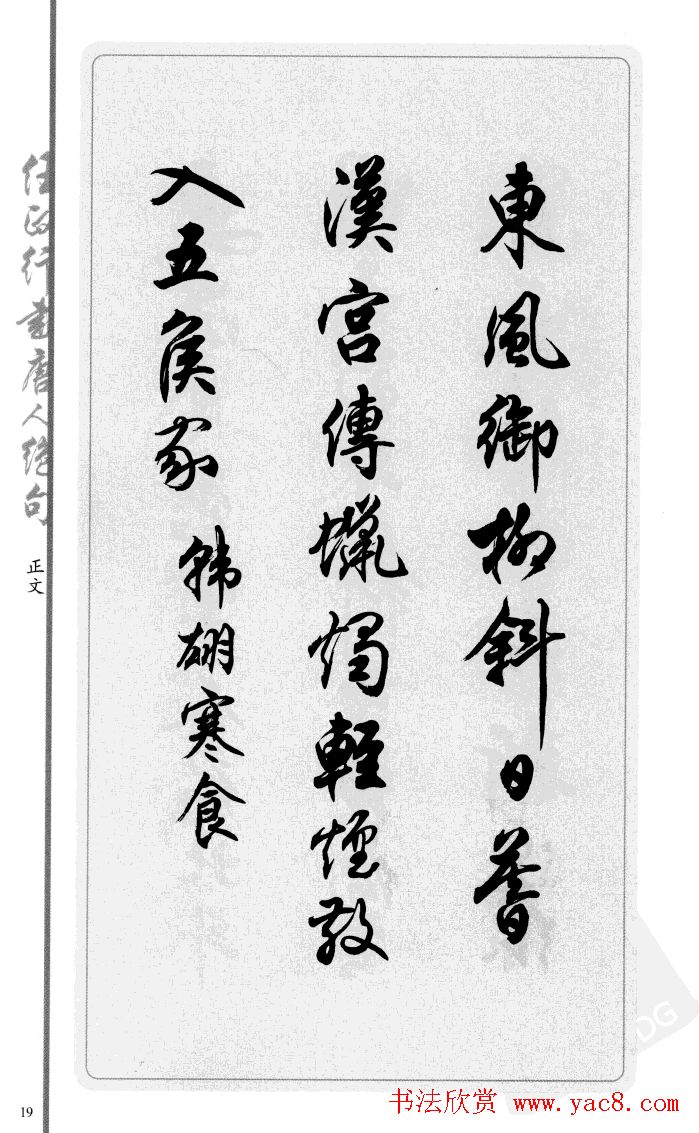 東風御柳斜日暮
漢宮傳蠟燭輕煙散
入五侯家 韩翃寒食
任政行書唐人绝句
正文
19
书法欣赏 www.yac8.com
DG